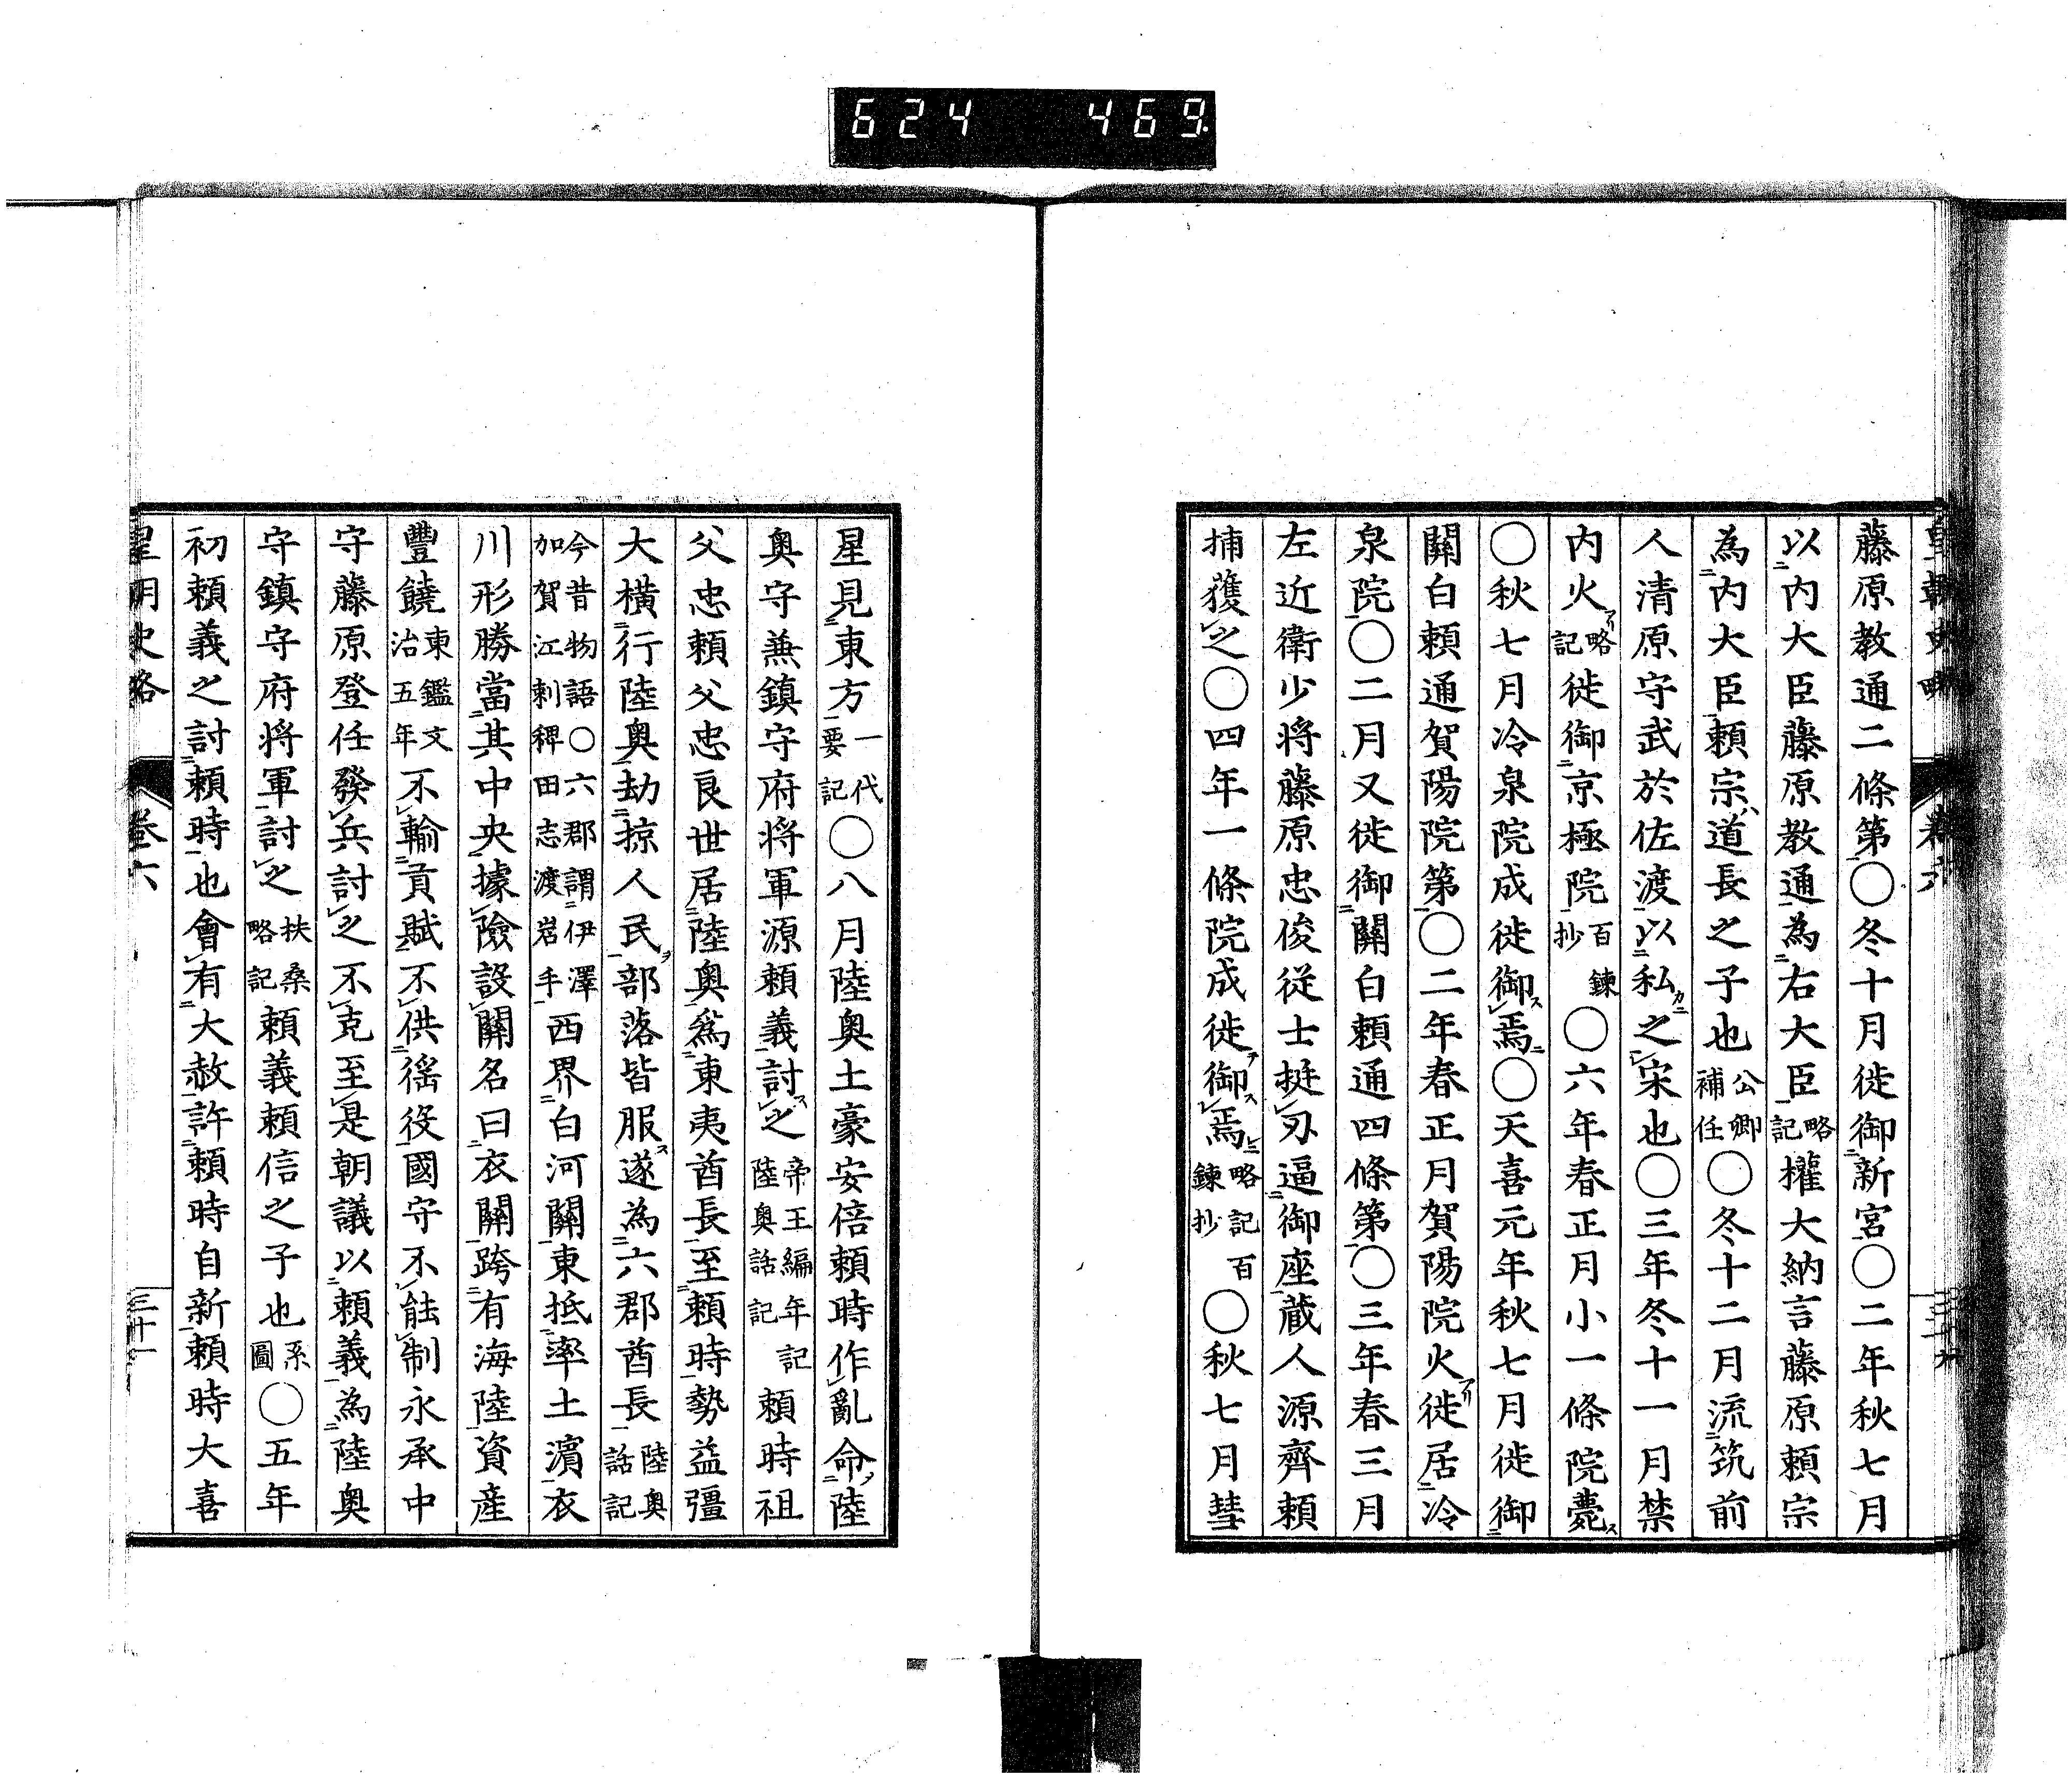 624 469
藤原教通二條第〇冬十月徙御新宮〇二年秋七月
以内大臣藤原教通為右大臣略記權大納言藤原頼宗
為内大臣頼宗ハ道長之子也公卿補任〇冬十二月流筑前
人清原守武於佐渡以私カニ之宋也〇三年冬十一月禁
内火アリ略記徙御京極院百鍊抄〇六年春正月小一條院薨ス
〇秋七月冷泉院成徙御ス焉〇天喜元年秋七月徙御
關白頼通賀陽院第〇二年春正月賀陽院火アリ徙居冷
泉院〇二月又徙御關白頼通四條第〇三年春三月
左近衛少将藤原忠俊従士挺刃逼御座蔵人源齊頼
捕獲之〇四年一條院成徙御ス焉略記百鍊抄〇秋七月彗
星見東方一代要記〇八月陸奥土豪安倍頼時作亂命陸
奥守兼鎮守府将軍源頼義討ス之帝王編年記陸奥話記頼時祖
父忠頼父忠良世居陸奥爲東夷酋長至頼時勢益彊
大横行陸奥劫掠人民ヲ部落皆服ス遂為六郡酋長陸奥話記
今昔物語〇六郡謂伊澤加賀江刺稗田志渡岩手西界白河關東抵率土濱衣
川形勝當其中央據險設關名曰衣關跨有海陸資産
豐饒東鑑文治五年不輸貢賦不供徭役國守不能制永承中
守藤原登任發兵討之不克至是朝議以頼義為陸奥
守鎮守府将軍討之扶桑略記頼義頼信之子也系圖〇五年
初頼義之討頼時也會有大赦許頼時自新頼時大喜
皇朝史略 卷六 三十一